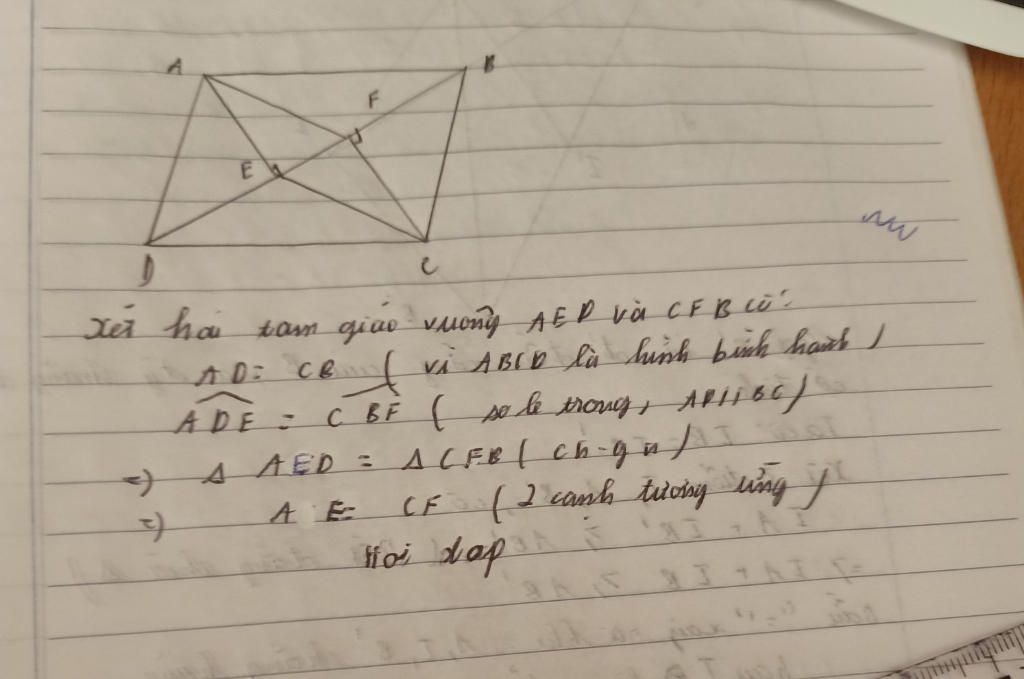 A B
F
E
D C
xét hai tam giác vuông AED và CFB có:
AD = CB ( vì ABCD là hình bình hành )
ADE = CBF ( so le trong, AD//BC )
=) Δ AED = Δ CFB ( ch-gn )
=) AE = CF ( 2 cạnh tương ứng )